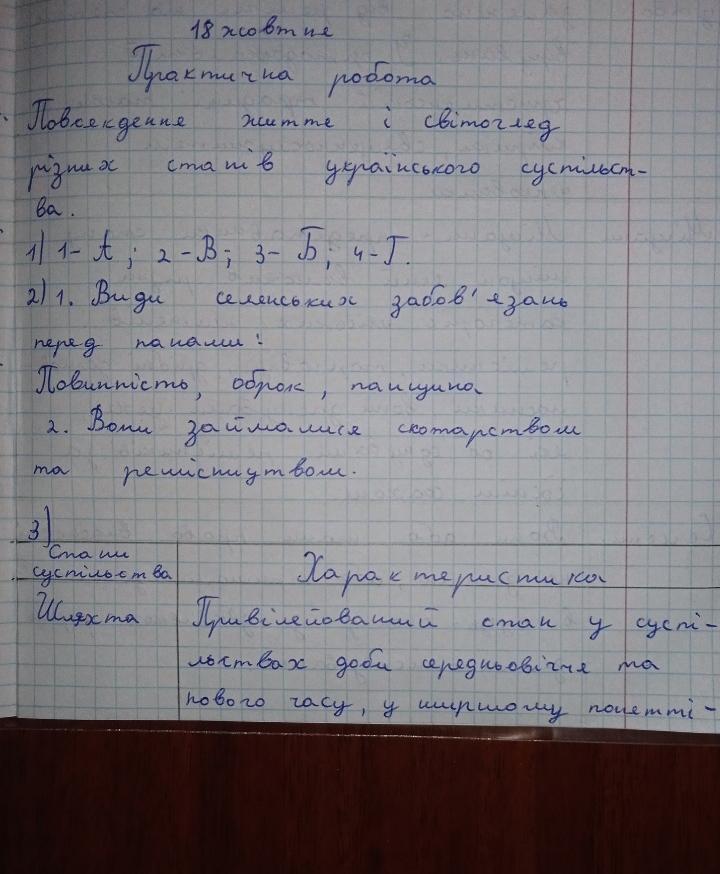 18 жовтня
Практична робота
Повсякдення життя і світогляд
різних станів українського суспільст-
ва.
1) 1- А; 2 -В; 3- Б; 4-Г.
2) 1. Види селянських забов'язань
перед панами:
Повинність, оброк, панщина
2. Вони займалися скотарством
та ремісництвом.
3)
Стани
суспільства
Характеристика
Шляхта
Привілейований стан у суспі-
льствах доби середньовіччя та
нового часу, у ширшому понятті-